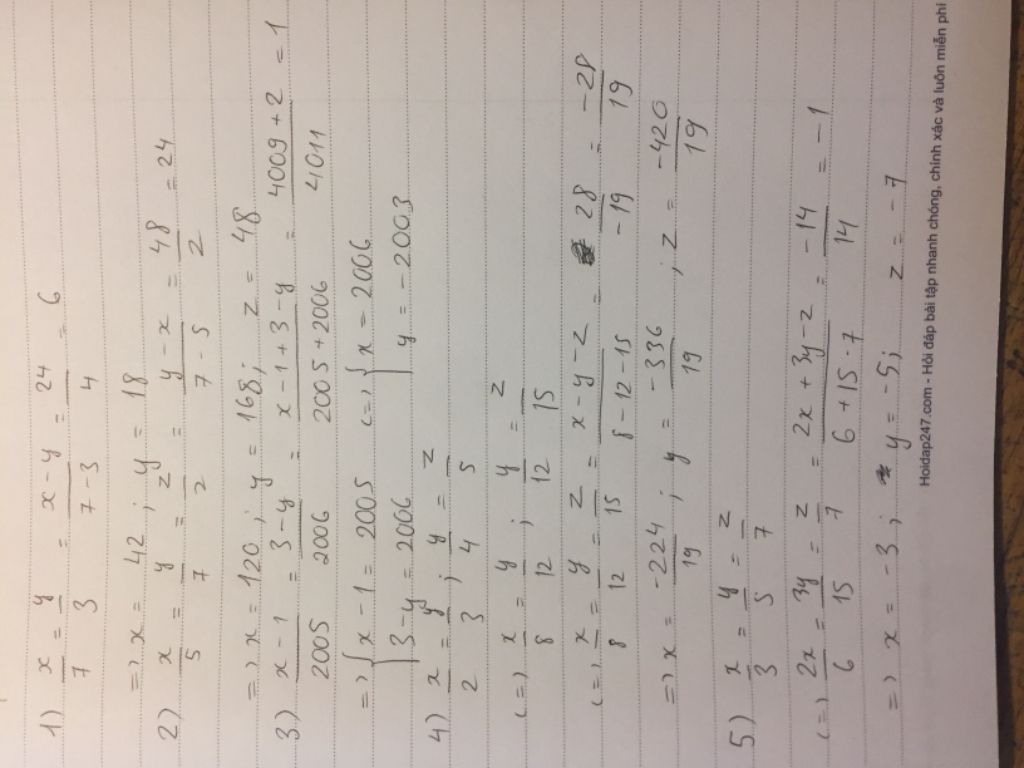 1) x/7 = y/3 = (x-y)/(7-3) = 24/4 = 6
=> x = 42 ; y = 18
2) x/5 = y/7 = z/2 = (y-x)/(7-5) = 48/2 = 24
=> x = 120 ; y = 168 ; z = 48
3) (x-1)/2005 = (3-y)/2006 = (x-1+3-y)/(2005+2006) = (4009+2)/4011 = 1
=> { x-1 = 2005 <=> { x = 2006
3-y = 2006 y = -2003
4) x/2 = y/3 ; y/4 = z/5
<=> x/8 = y/12 ; y/12 = z/15
<=> x/8 = y/12 = z/15 = (x-y-z)/(8-12-15) = 28/-19 = -28/19
=> x = -224/19 ; y = -336/19 ; z = -420/19
5) x/3 = y/5 = z/7
<=> 2x/6 = 3y/15 = z/7 = (2x+3y-z)/(6+15-7) = -14/14 = -1
=> x = -3 ; y = -5 ; z = -7
Hoidap247.com - Hỏi đáp bài tập nhanh chóng, chính xác và luôn miễn phí